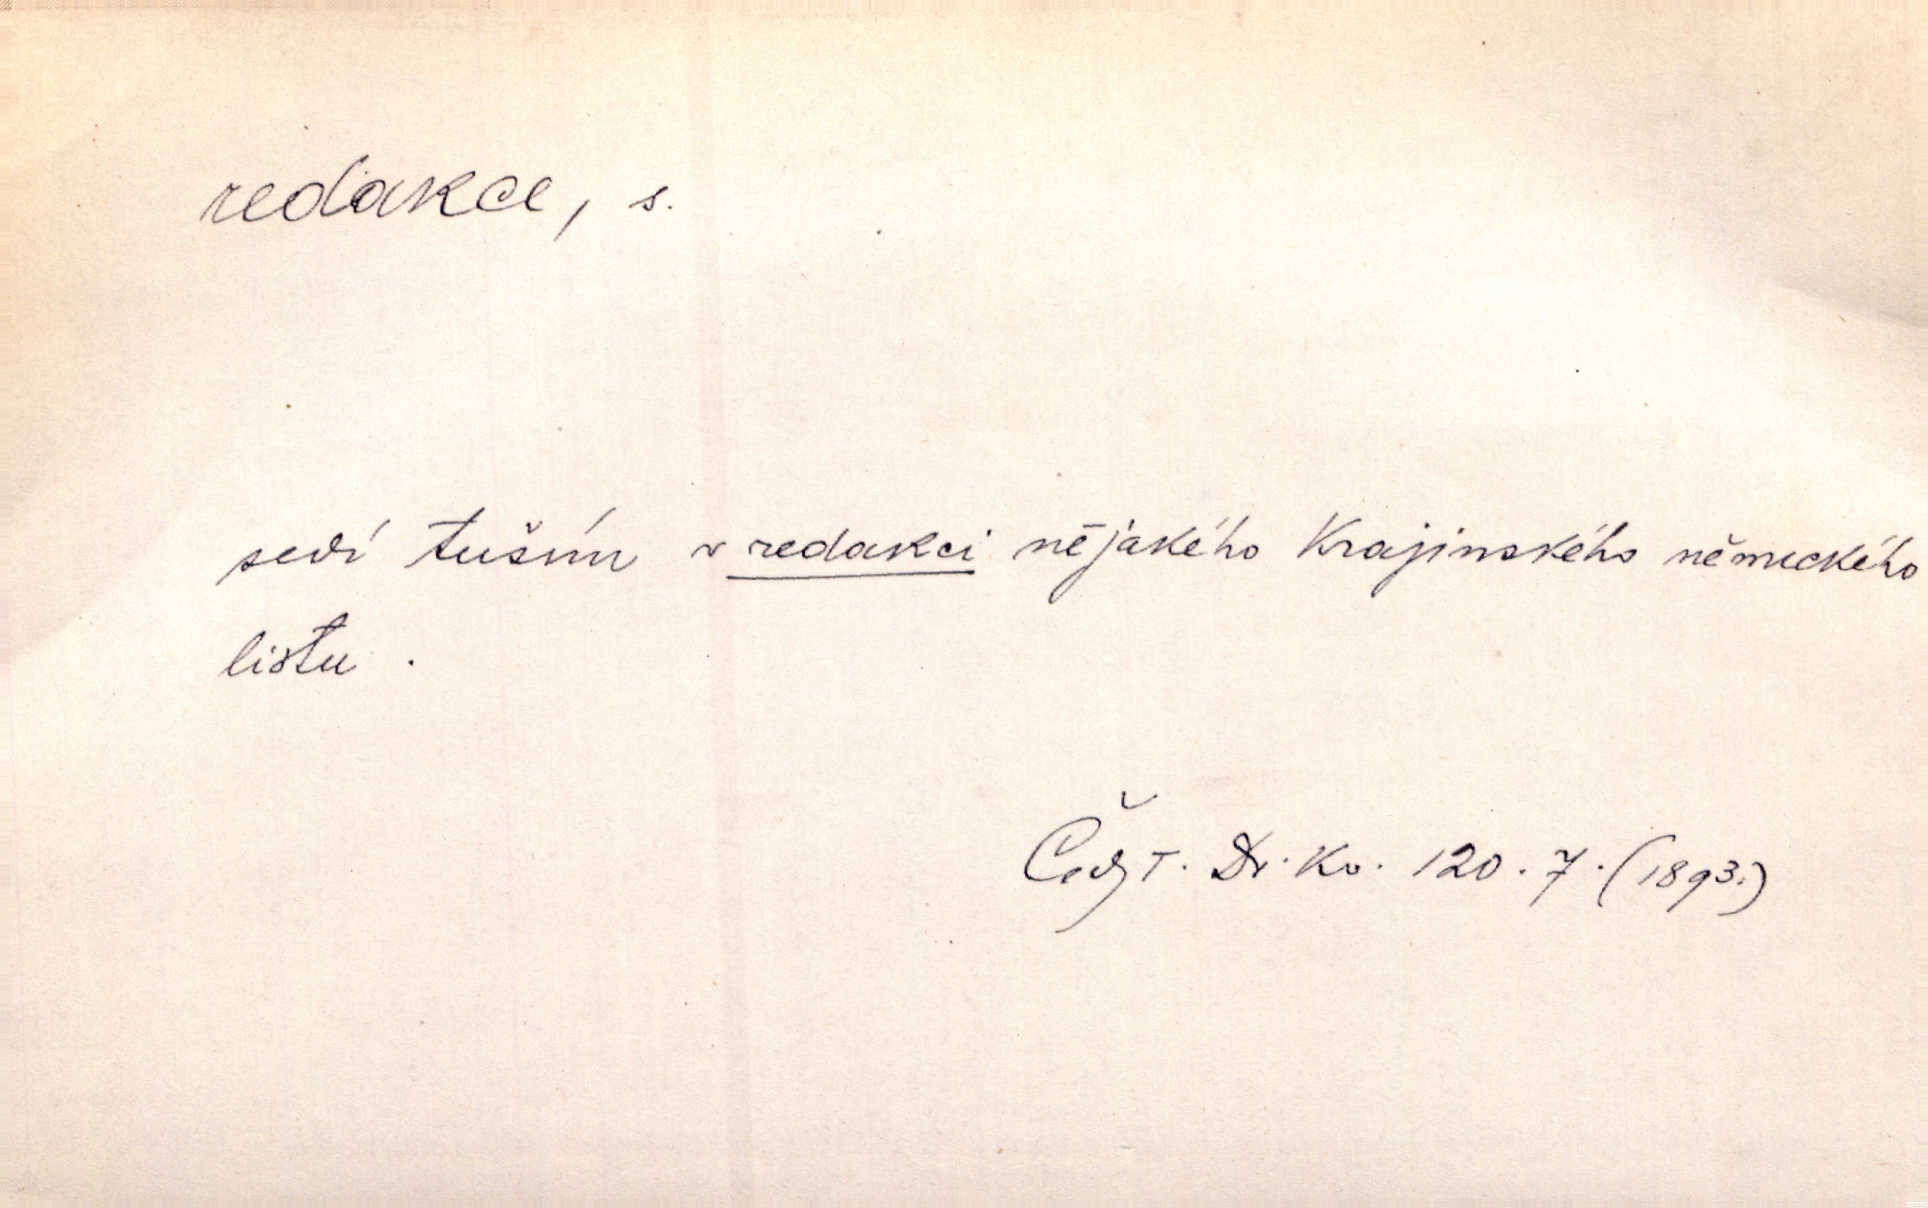 redakce, s.
sedí tuším v redakci nějakého Krajinského německého
listu.
Čech T. Dr. Kv. 120. 7. (1893.)